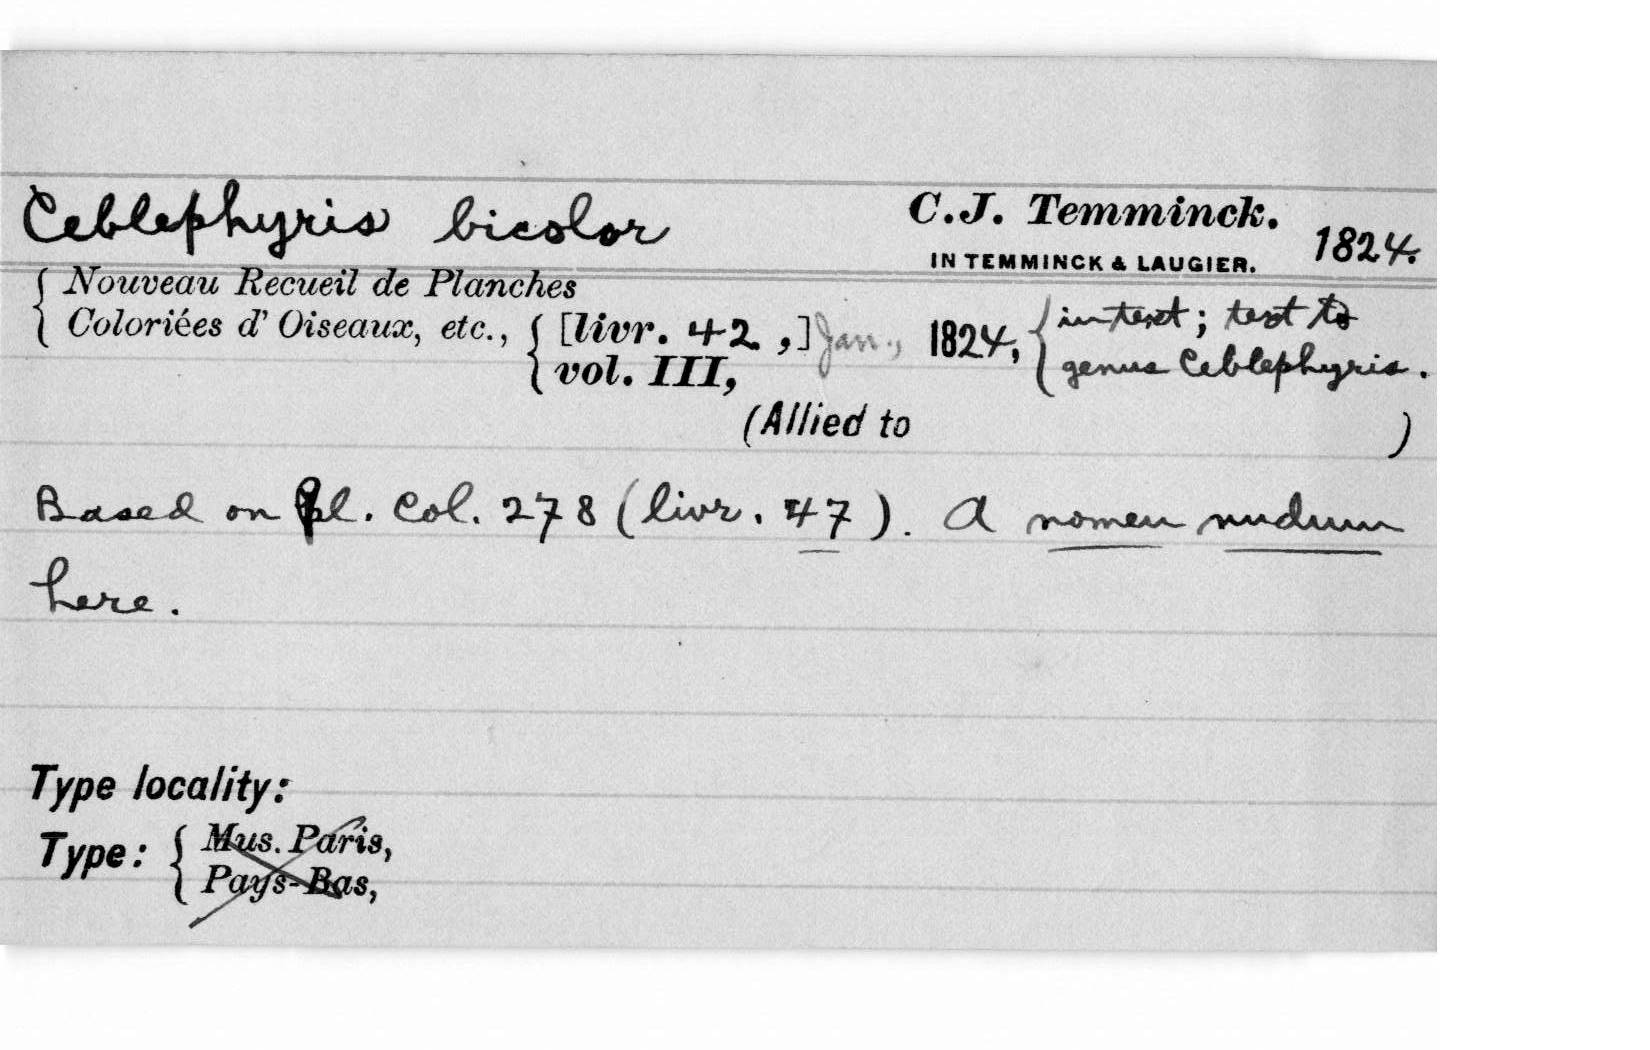 Ceblephyris bicolor C.J. Temminck.
IN TEMMINCK & LAUGIER. 1824.
{ Nouveau Recueil de Planches
Coloriées d' Oiseaux, etc., { [livr. 42 ,] Jan., 1824, { in text; text to
vol. III, genus Ceblephyris.
(Allied to )
Based on Pl. Col. 278 (livr. 47). A nomen nudum
here.
Type locality:
Type: { Mus. Paris,
Pays-Bas,